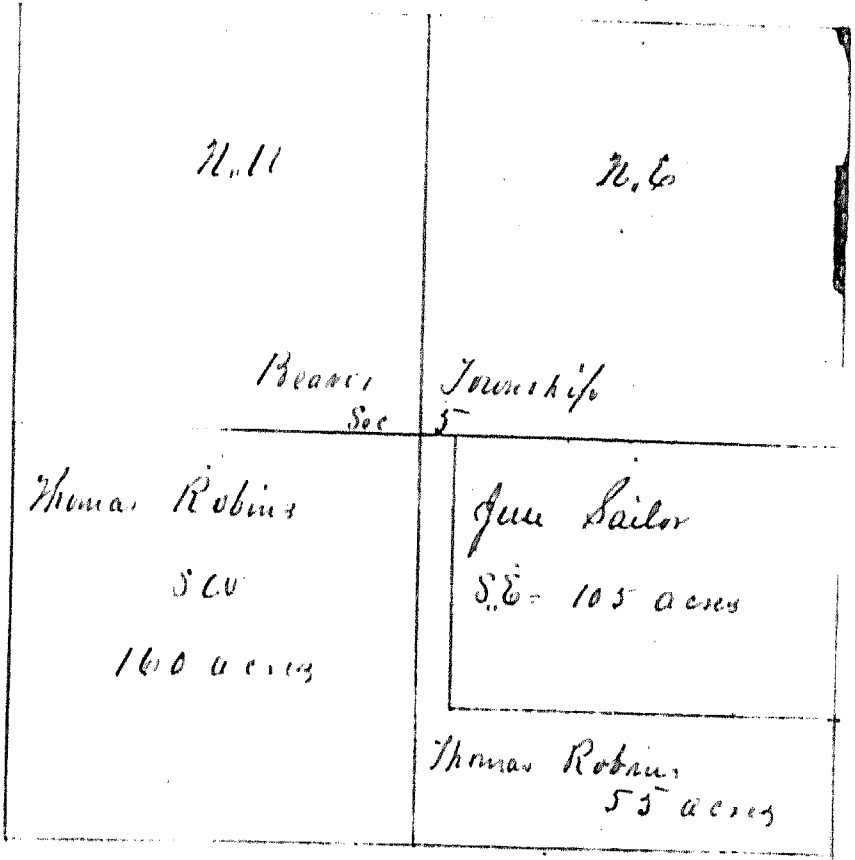 N.W
N.E
Beaver Township
Sec 5
Thomas Robins
SW
160 acres
Sailor
S.E= 105 acres
Thomas Robins
55 acres